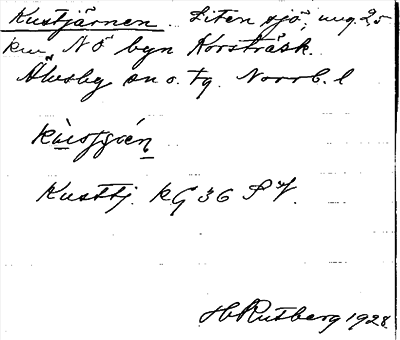 Kustjärnen. Liten sjö, ung. 2,5
km NÖ byn Korsträsk.
Älvsby sn o. tg. Norrb. l
Kusttj. KG 36 SV.
H Rutberg 1928